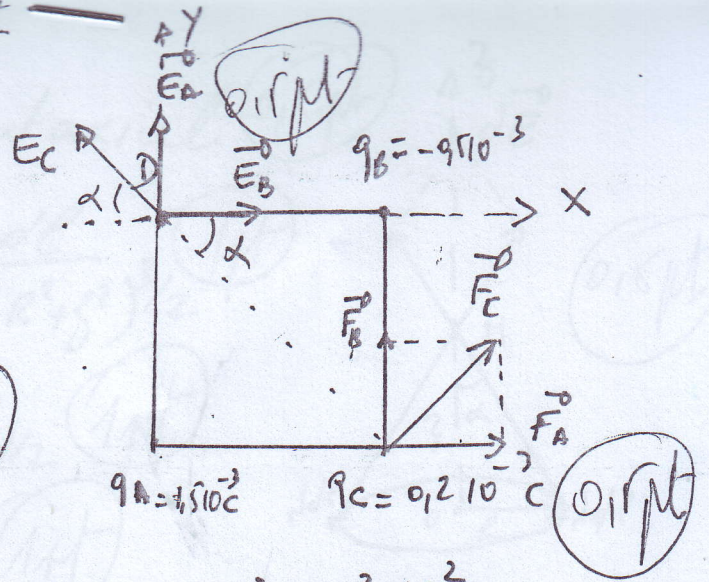 Y
E_A
0,5pt
E_C
D
E_B
q_B = -0,5 10^-3
α
X
α
F_C
F_B
F_A
q_A = 1,5 10^-3 C
q_C = 0,2 10^-3 C
0,5pt